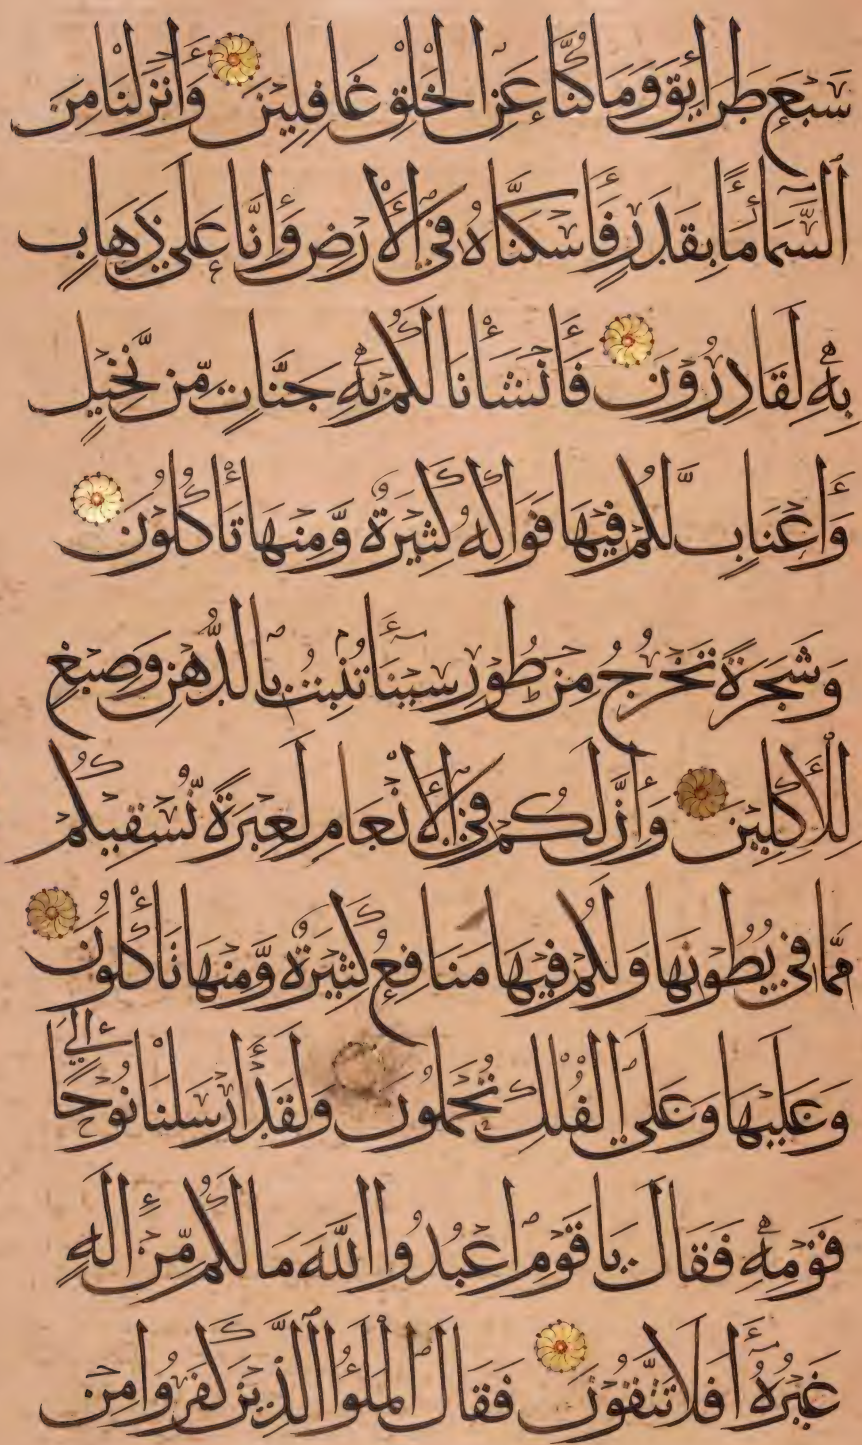 سَبْعَ طَرَائِقَ وَمَا كُنَّا عَنِ الْخَلْقِ غَافِلِينَ وَأَنْزَلْنَا مِنَ
السَّمَاءِ مَاءً بِقَدَرٍ فَأَسْكَنَّاهُ فِي الْأَرْضِ وَإِنَّا عَلَى ذَهَابٍ
بِهِ لَقَادِرُونَ فَأَنْشَأْنَا لَكُمْ بِهِ جَنَّاتٍ مِّنْ نَّخِيلٍ
وَأَعْنَابٍ لَّكُمْ فِيهَا فَوَاكِهُ كَثِيرَةٌ وَّمِنْهَا تَأْكُلُونَ
وَشَجَرَةً تَخْرُجُ مِنْ طُورِ سَيْنَاءَ تَنْبُتُ بِالدُّهْنِ وَصِبْغٍ
لِلْآكِلِينَ وَإِنَّ لَكُمْ فِي الْأَنْعَامِ لَعِبْرَةً نُّسْقِيكُمْ
مِّمَّا فِي بُطُونِهَا وَلَكُمْ فِيهَا مَنَافِعُ كَثِيرَةٌ وَّمِنْهَا تَأْكُلُونَ
وَعَلَيْهَا وَعَلَى الْفُلْكِ تُحْمَلُونَ وَلَقَدْ أَرْسَلْنَا نُوحًا إِلَى
قَوْمِهِ فَقَالَ يَا قَوْمِ اعْبُدُوا اللَّهَ مَا لَكُمْ مِّنْ إِلَهٍ
غَيْرُهُ أَفَلَا تَتَّقُونَ فَقَالَ الْمَلَؤُا الَّذِينَ كَفَرُوا مِنْ